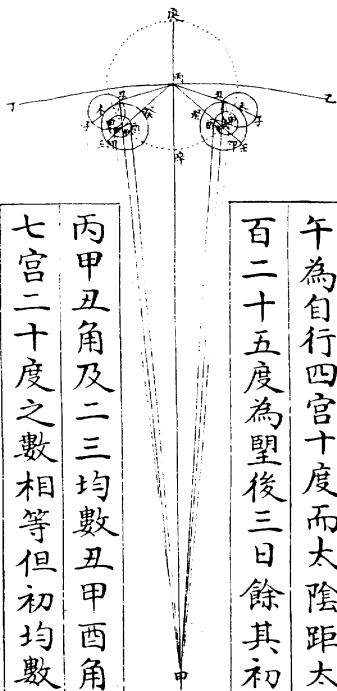 午為自行四宮十度而太陰距太
百二十五度為朢後三日餘其初
丙甲丑角及二三均數丑甲酉角
七宮二十度之數相等但初均數
庚
丙
丁
乙
甲